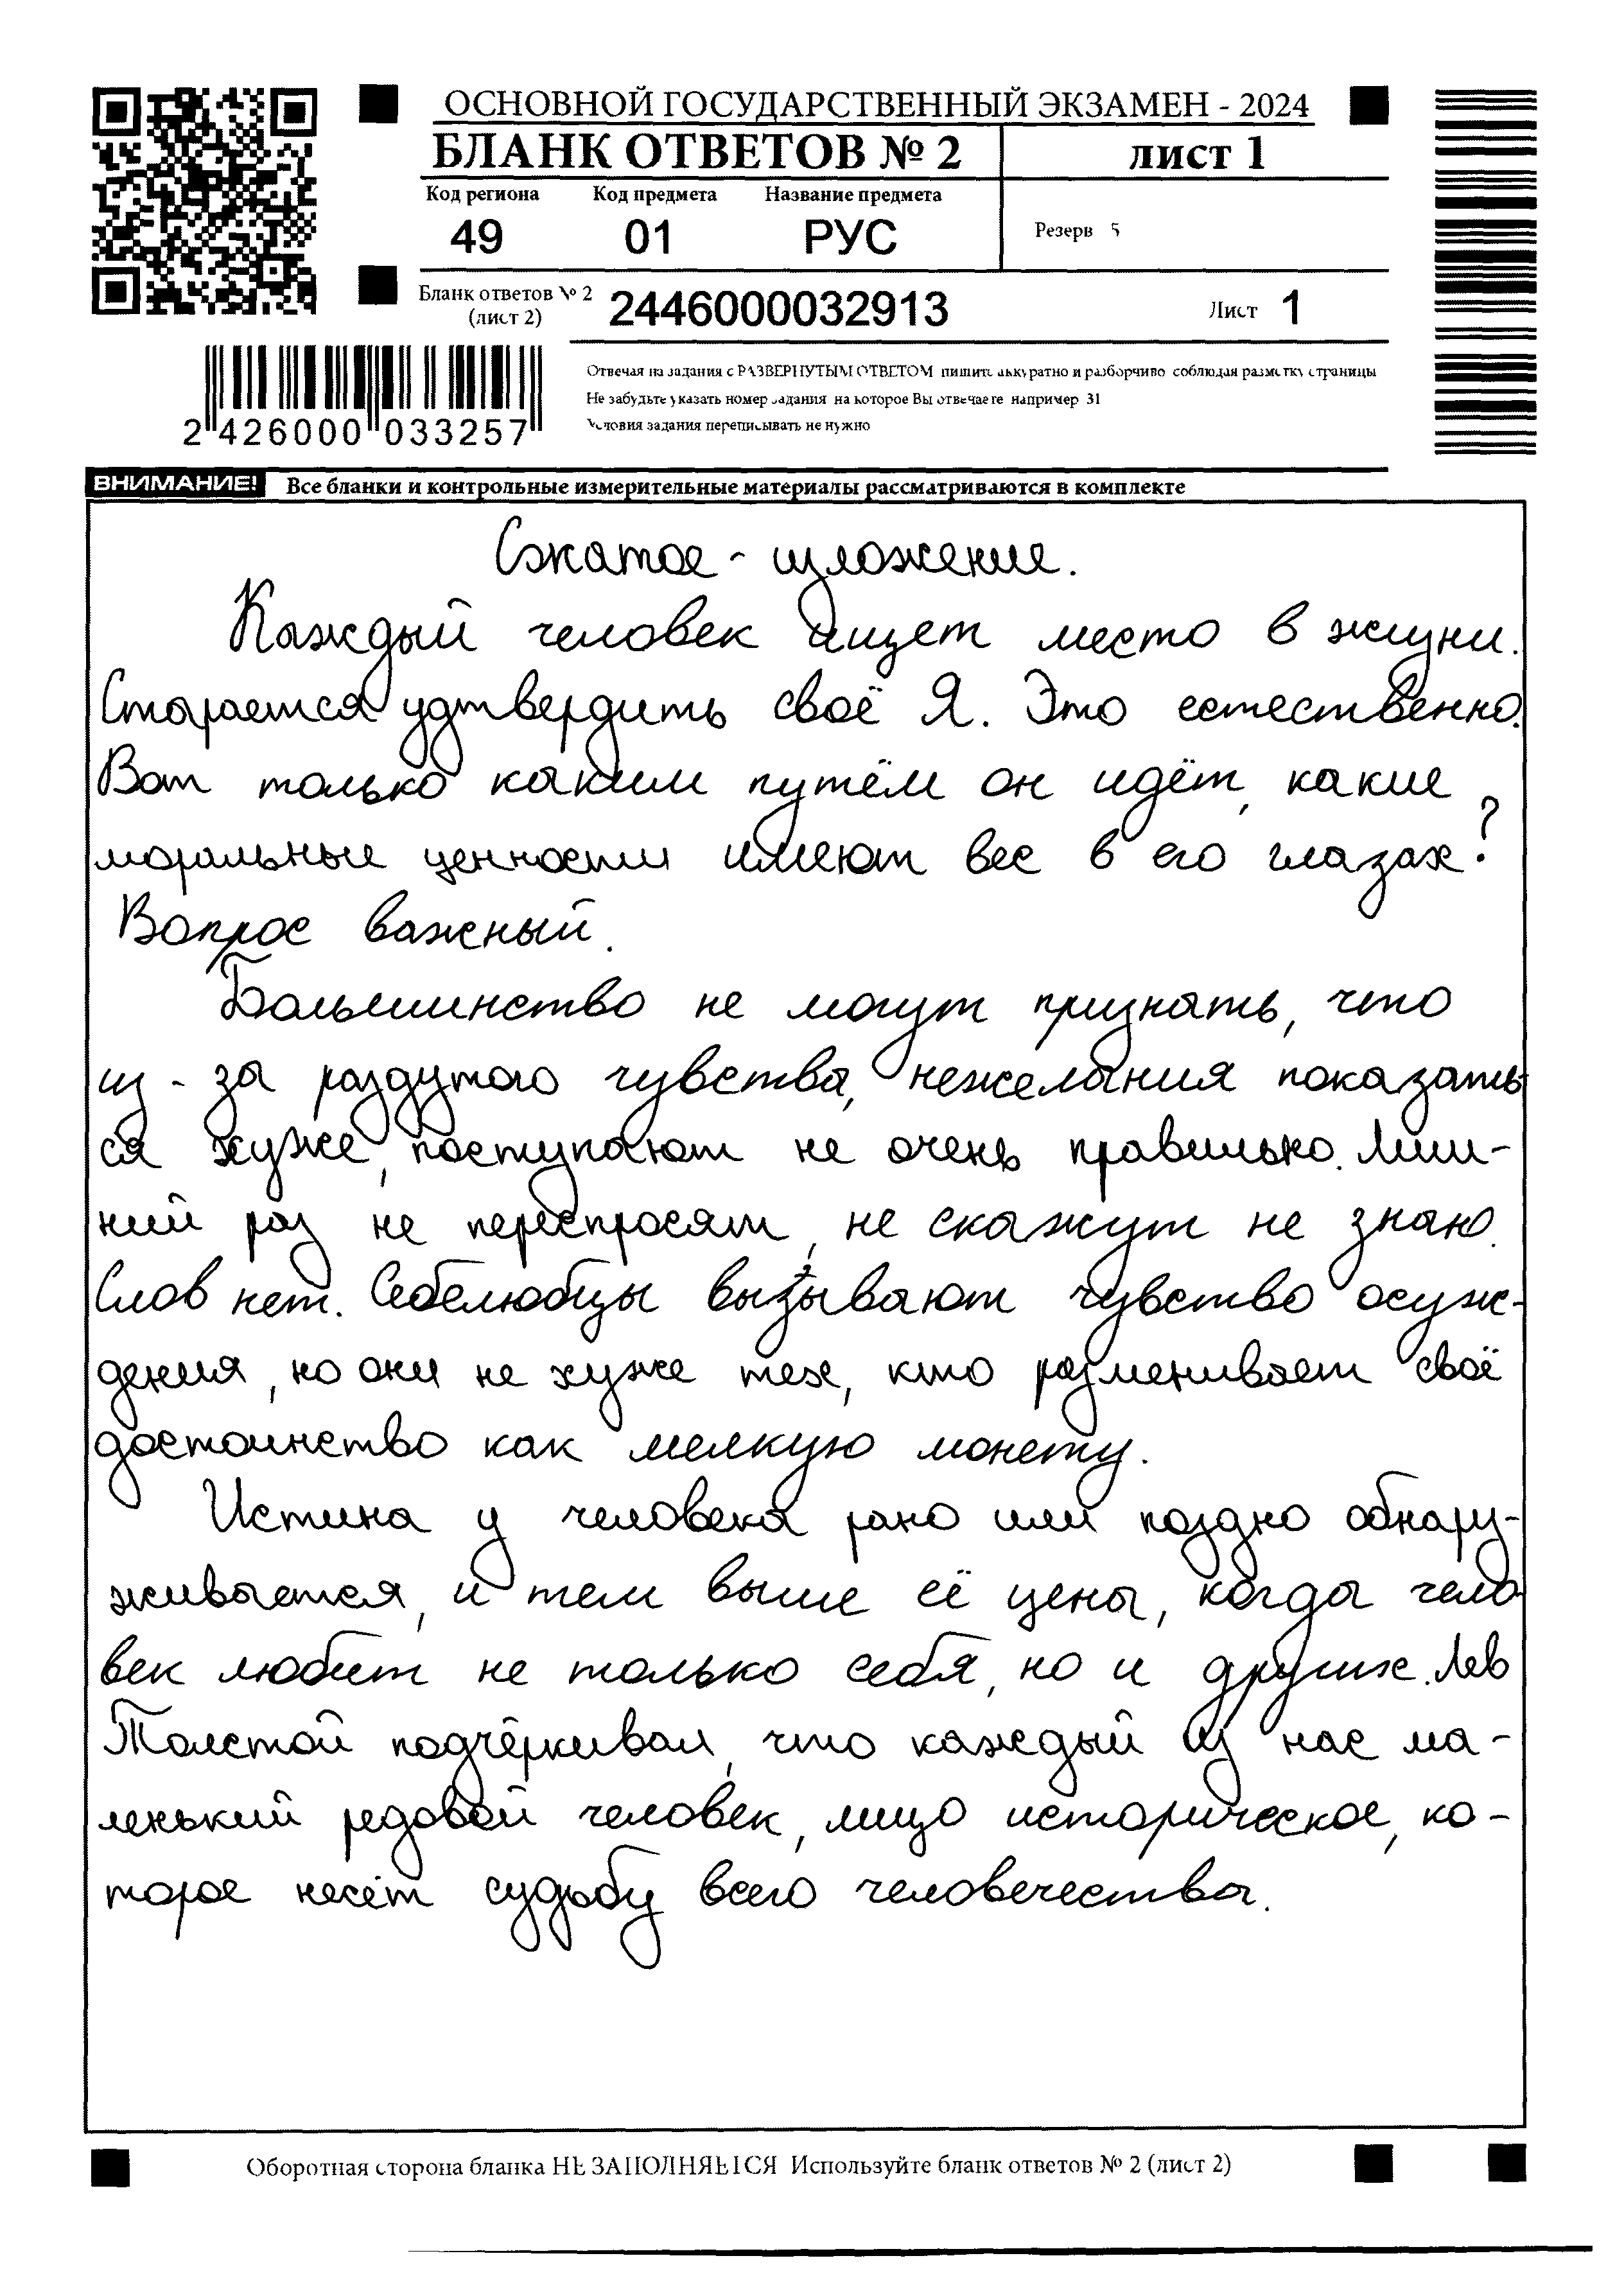 ОСНОВНОЙ ГОСУДАРСТВЕННЫЙ ЭКЗАМЕН - 2024
БЛАНК ОТВЕТОВ № 2 лист 1
Код региона Код предмета Название предмета
49 01 РУС
Резерв 5
Бланк ответов № 2 (лист 2) 2446000032913 Лист 1
2 426000 033257
Отвечая на задания с РАЗВЕРНУТЫМ ОТВЕТОМ пишите аккуратно и разборчиво соблюдая разметку страницы
Не забудьте указать номер задания на которое Вы отвечаете например 31
Условия задания переписывать не нужно
ВНИМАНИЕ! Все бланки и контрольные измерительные материалы рассматриваются в комплекте
Сжатое - изложение.
Каждый человек ищет место в жизни.
Старается удтвердить своё Я. Это естественно.
Вот только каким путём он идёт, какие
моральные ценности имеют вес в его глазах?
Вопрос важный.
Большинство не могут признать, что
из - за раздутого чувства, нежелания показать
ся хуже, поступают не очень правильно. Лиш-
ний раз не переспросят, не скажут не знаю.
Слов нет. Себелюбцы вызывают чувство осуж-
дения, но они не хуже тех, кто разменивает своё
достоинство как мелкую монету.
Истина у человека рано или поздно обнару-
живается, и тем выше её цены, когда чело
век любит не только себя, но и других. Лев
Толстой подчёркивал, что каждый из нас ма-
ленький редовой человек, лицо историческое, ко-
торое несёт судьбу всего человечества.
Оборотная сторона бланка НЕ ЗАПОЛНЯЕТСЯ Используйте бланк ответов № 2 (лист 2)